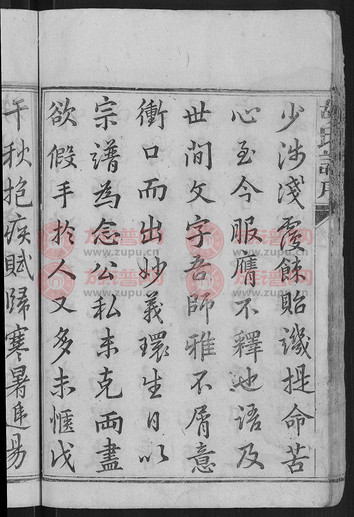 少涉淺處餘貽譏提命苦
心至今服膺不釋他語及
世間文字吾師雅不屑意
衝口而出妙義環生日以
宗譜為念公私未克兩盡
欲假手於人又多未愜戊
午秋抱疾賦歸寒暑迭易
族谱网
www.zupu.cn